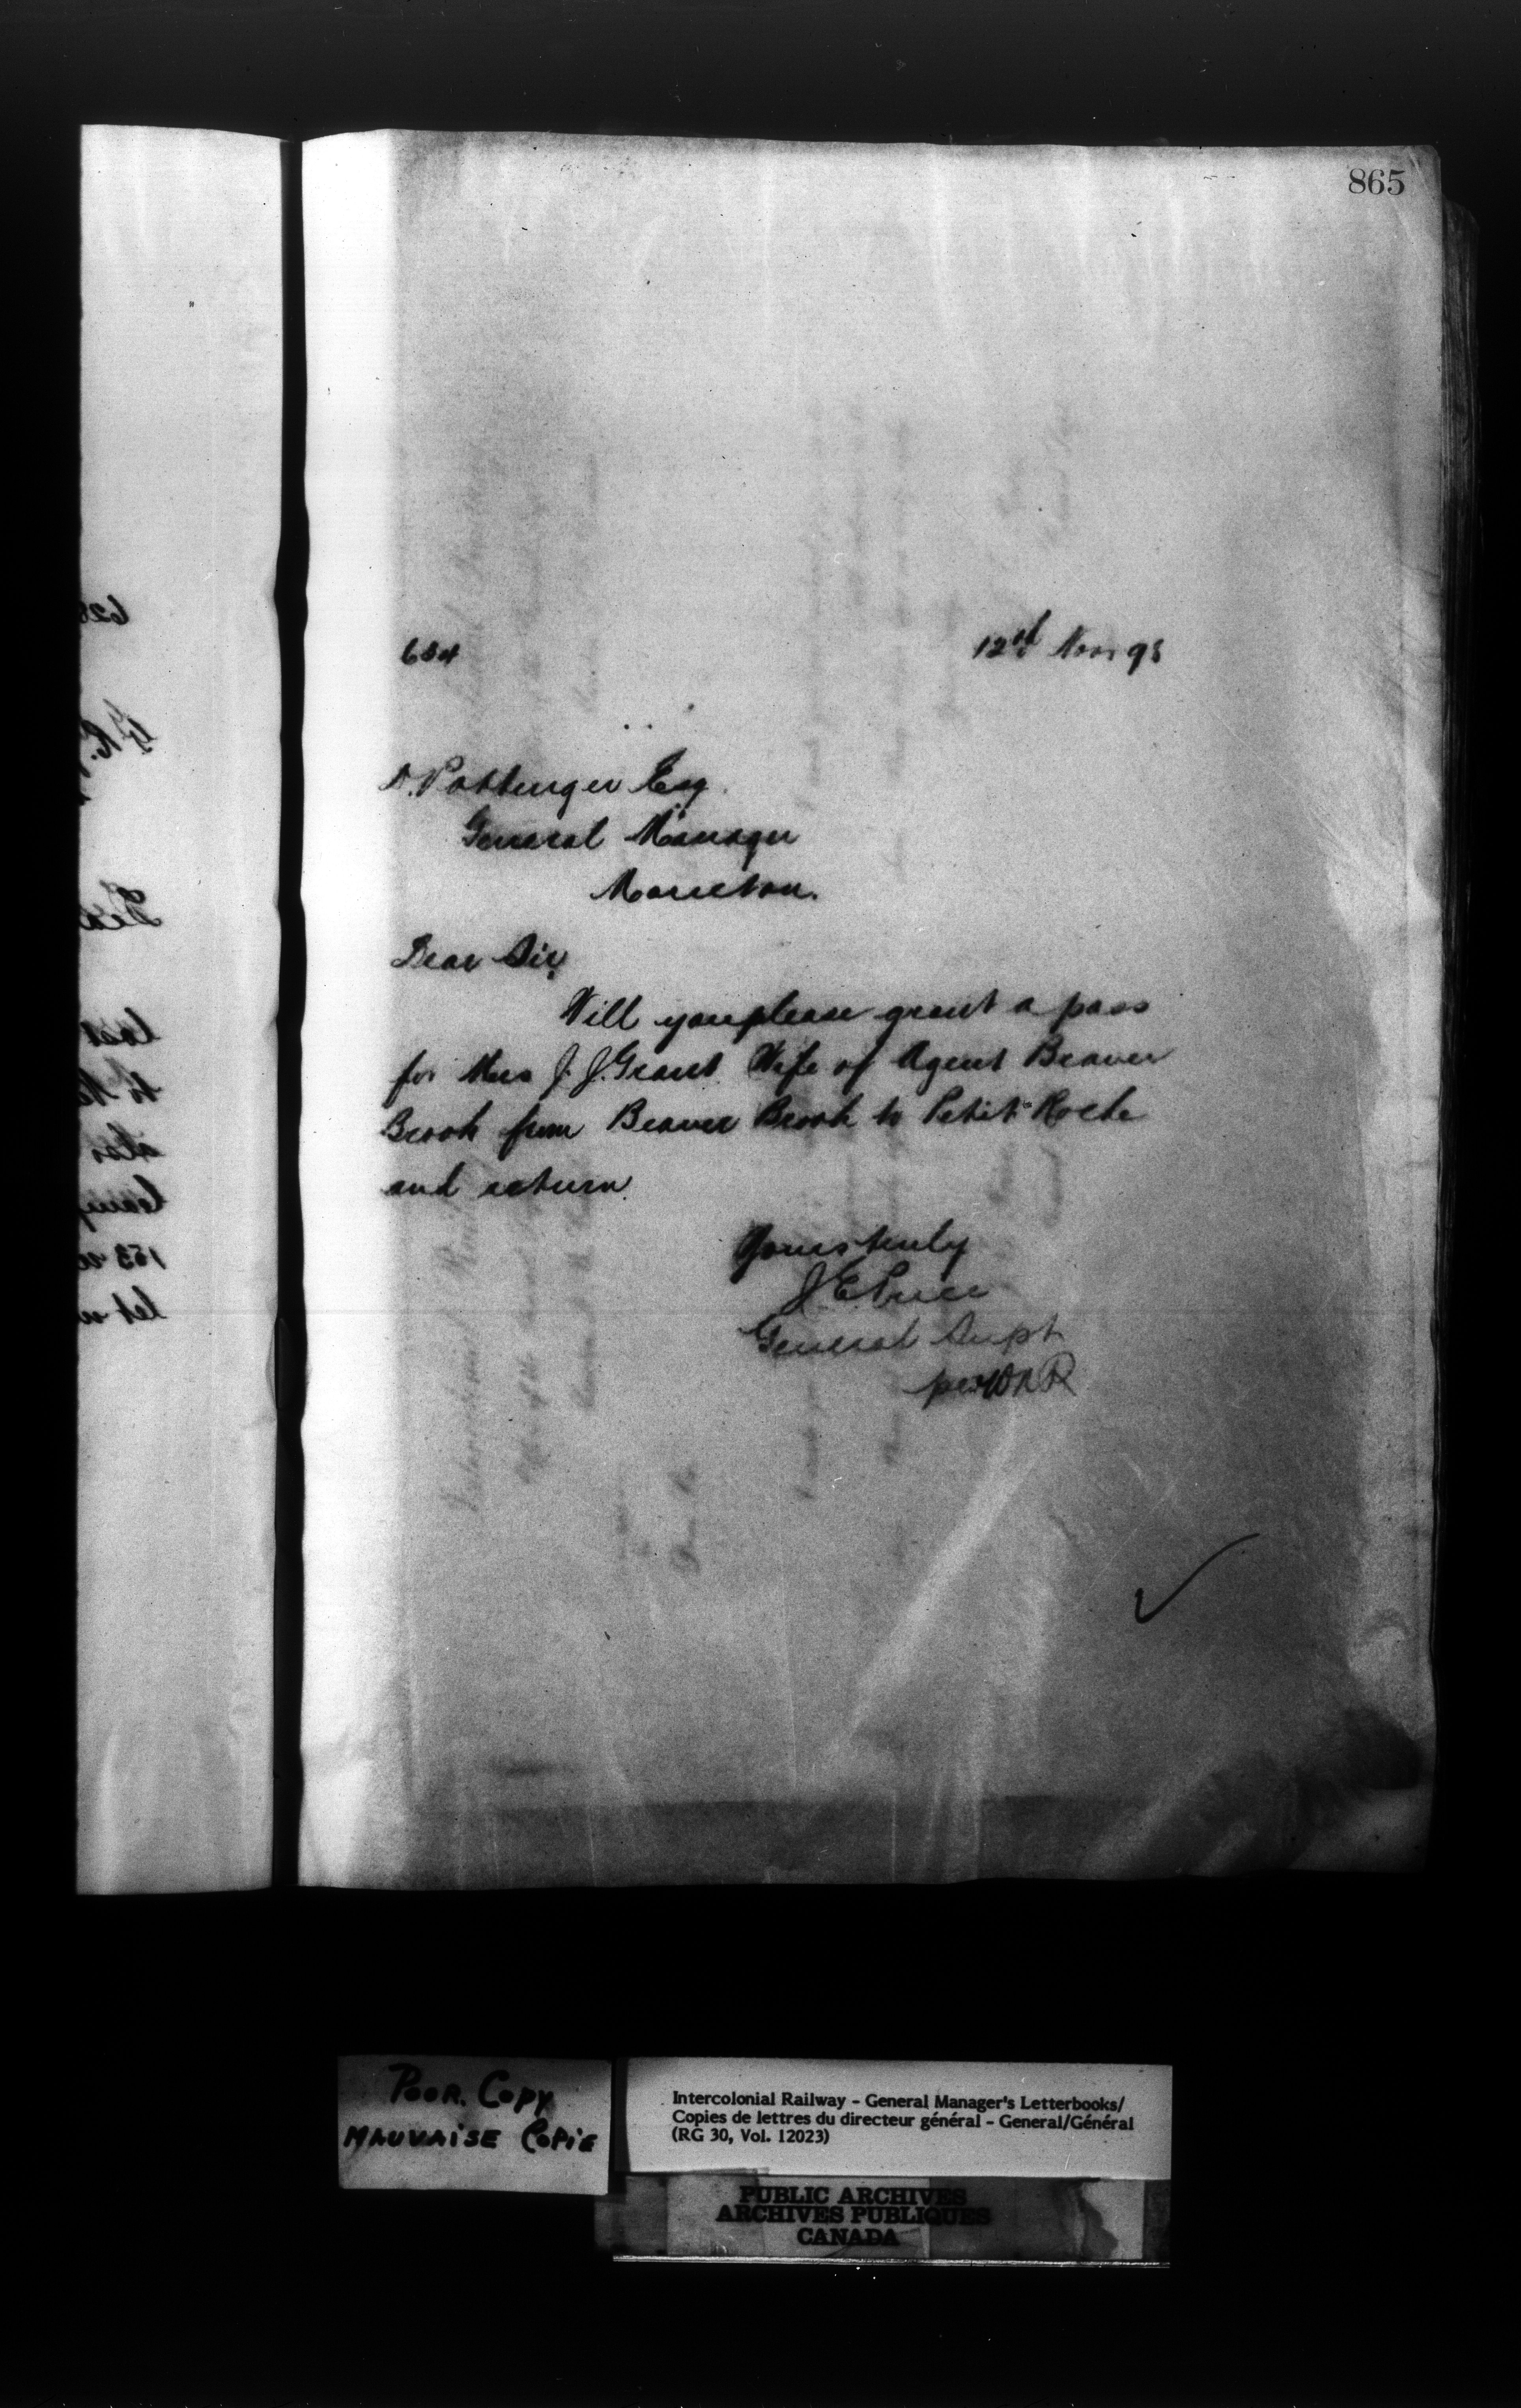 865
634
12th Nov 98
D. Pottinger Esq.
General Manager
Moncton.
Dear Sir,
Will you please grant a pass
for Mrs J. J. Grant Wife of Agent Beaver
Brook from Beaver Brook to Petit Roche
and return.
Yours truly
J. E. Price
General Supt
per WAR
POOR. COPY
MAUVAISE COPIE
Intercolonial Railway - General Manager's Letterbooks/
Copies de lettres du directeur général - General/Général
(RG 30, Vol. 12023)
PUBLIC ARCHIVES
ARCHIVES PUBLIQUES
CANADA